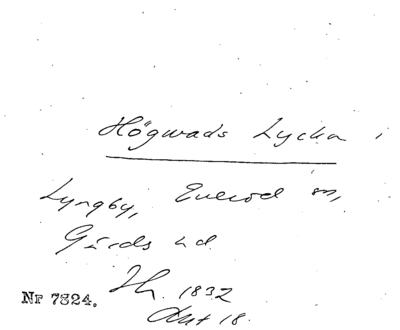 Högwads Lycka
Lyngby, Everöd sn,
Gärds hd.
1832
Akt 18.
Nr 7324.